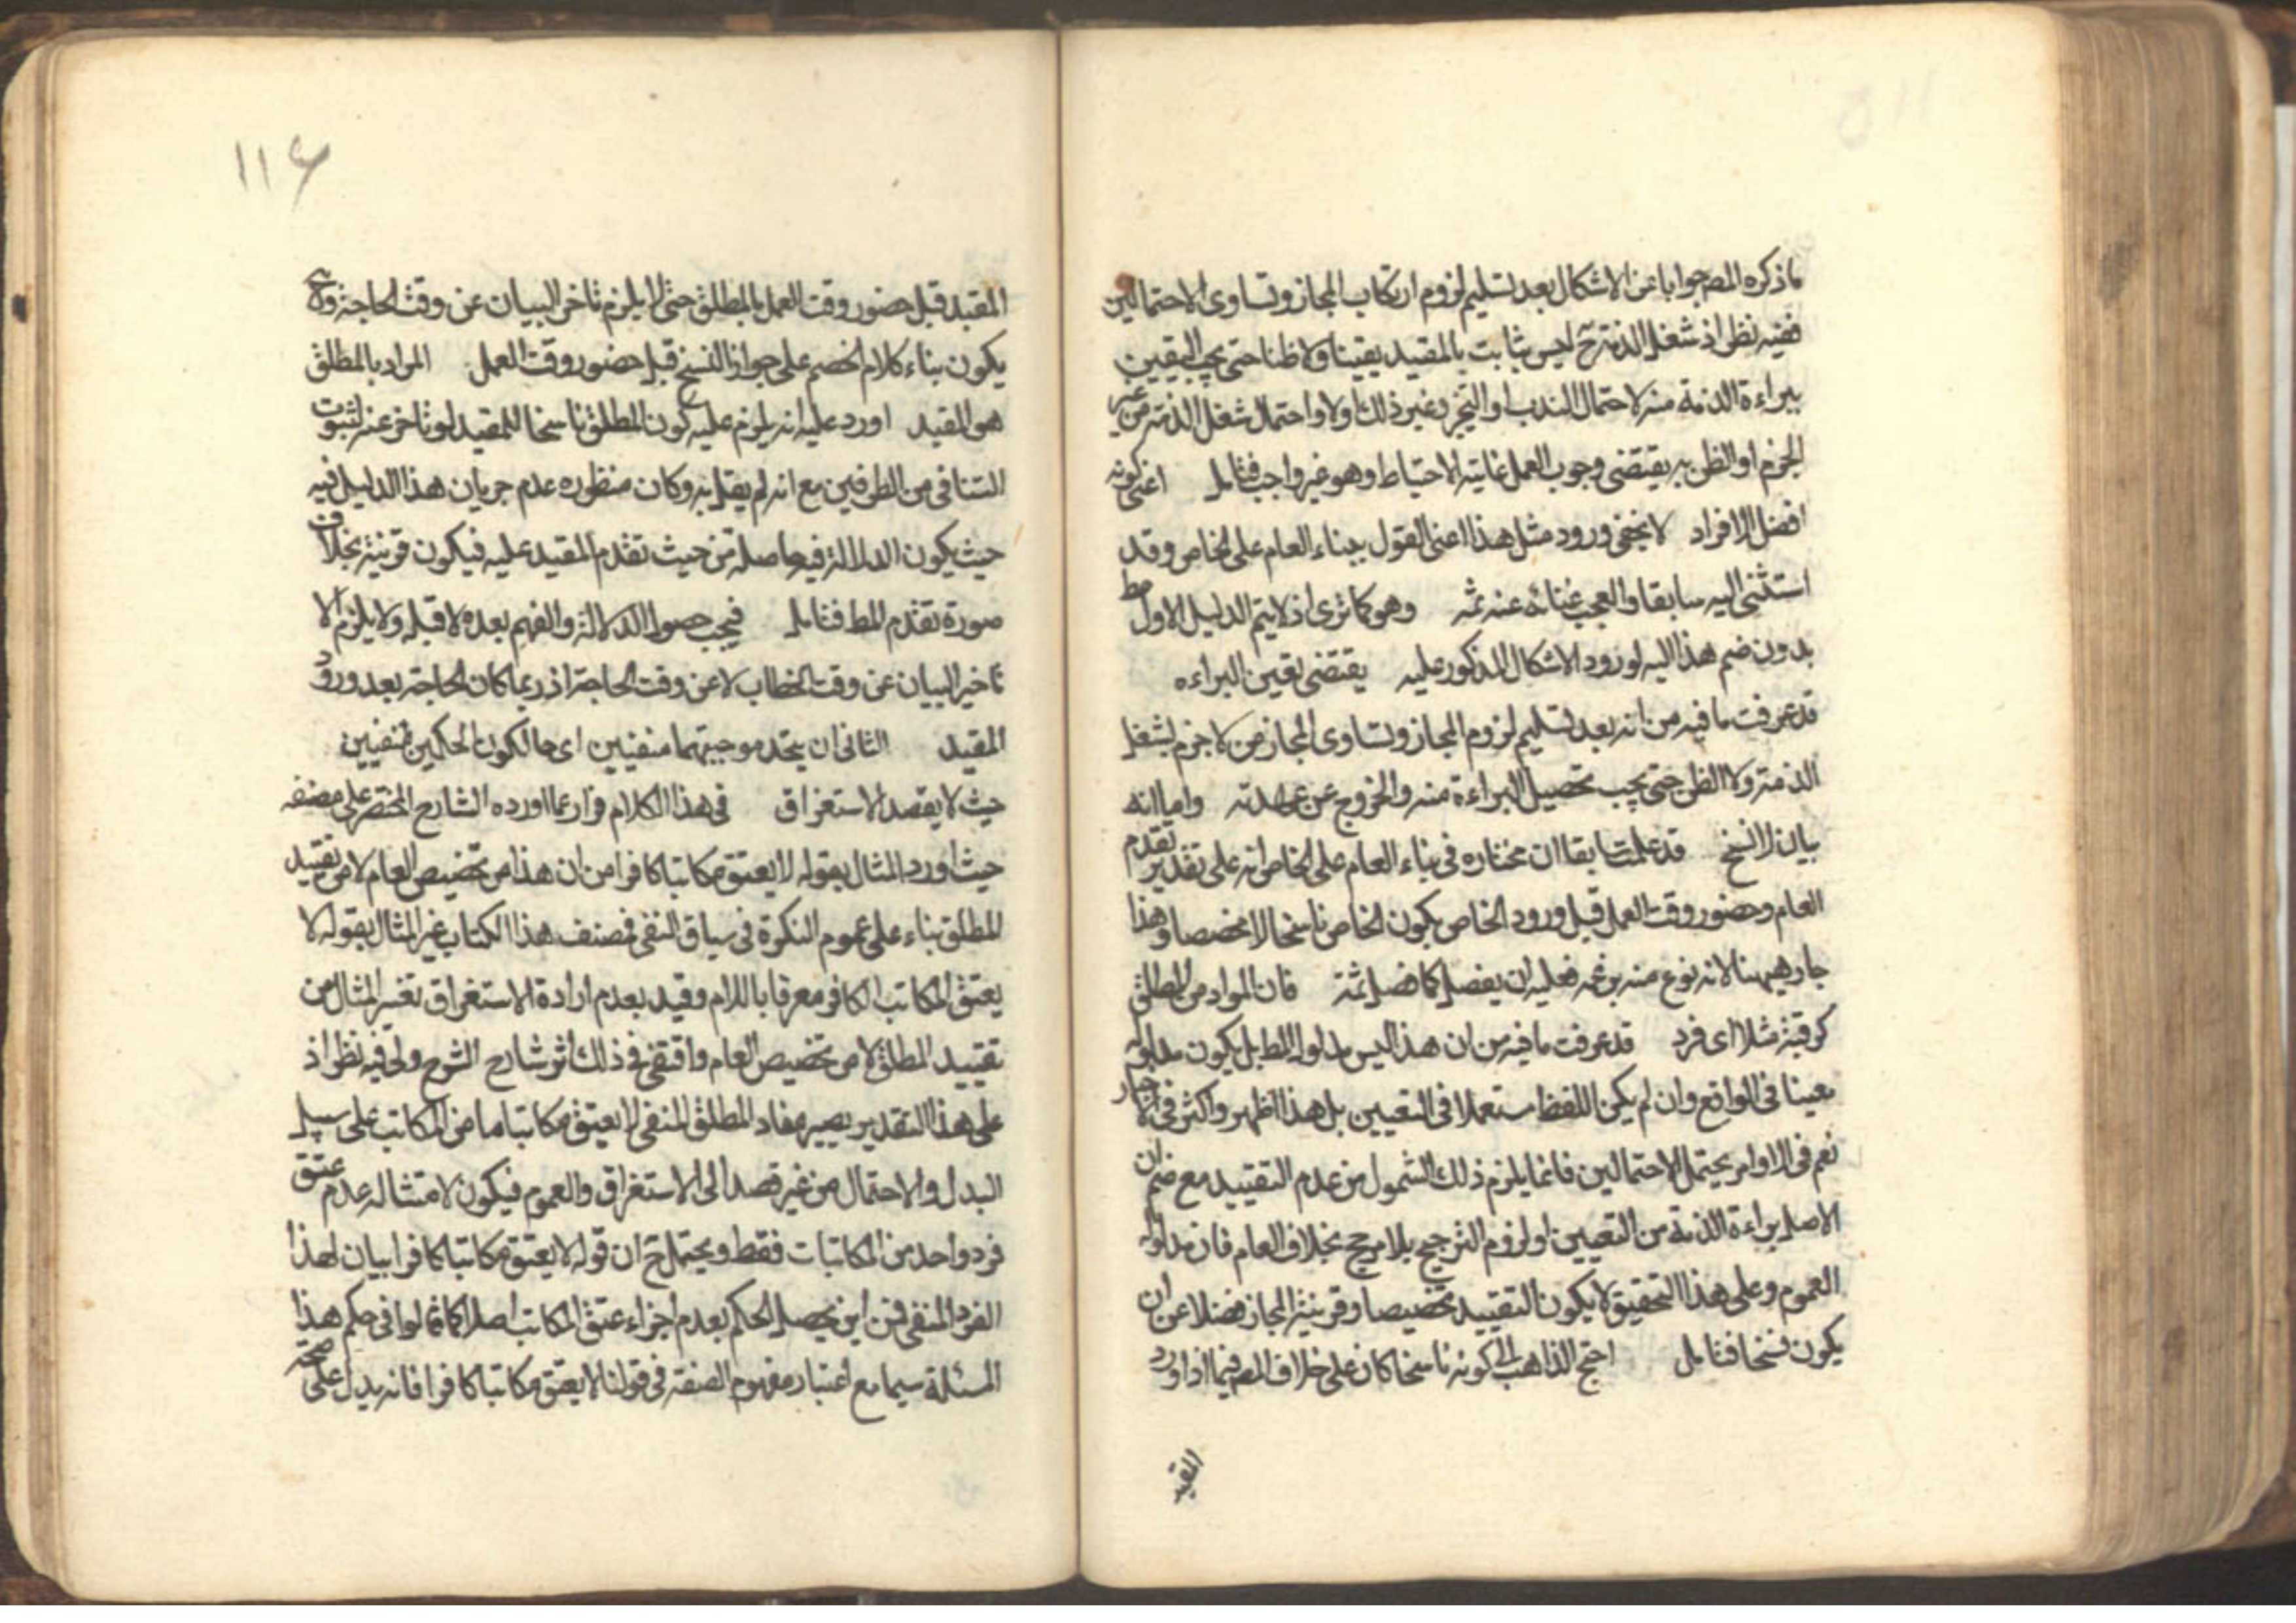 ما ذكره المصه جوابا عن الاشكال بعد تسليم لزوم ارتكاب المجاز وتساوى الاحتمالين
ففيه نظر اذ شغل الذمة ح ليس بثابت بالمقيد يقينا ولا ظنا حتى يجب اليقين
ببراءة الذمة منه لاحتمال الندب او التخير وغير ذلك اولا واحتمال شغل الذمة من غير
الجزم او الظن به يقتضى وجوب العمل غايته الاحتياط وهو غير واجب فتامل اعنى كونه
افضل الافراد لا يخفى ورود مثل هذا اعنى القول ببناء العام على الخاص وقد
اليه سابقا والعجب عنه ثمه وهو كما ترى اذ لا يتم الدليل الاول
بدون ضم هذا اليه لورود الاشكال المذكور عليه يقتضى يقين البراءه
قد عرفت ما فيه من انه بعد تسليم لزوم المجاز وتساوى المجاز من لا جزم بشغل
الذمة ولا الظن حتى يجب تحصيل البراءة منه والخروج عن عهدته واما انه
بيان لا نسخ قد علمت سابقا ان مختاره فى بناء العام على الخاص انه على تقدير تقدم
العام وحضور وقت العمل قبل ورود الخاص يكون الخاص ناسخا لا مخصصا وهذا
جار هيهنا لانه نوع منه بزعمه فعليه ان يفصل كما فصل ثمة فان المراد من المطلق
كرقبة مثلا اى فرد قد عرفت ما فيه من ان هذا ليس مدلول المط بل يكون مدلوله
معينا فى الواقع وان لم يكن اللفظ مستعملا فى التعيين بل هذا اظهر واكثر فى الاخبار
نعم فى الاوامر يحتمل الاحتمالين فانما يلزم ذلك الشمول من عدم التقييد مع ضم ان
الاصل براءة الذمة من التعيين او لزوم الترجيح بلا مرجح بخلاف العام فان مدلوله
العموم وعلى هذا التحقيق لا يكون التقييد تخصيصا وقرينة المجاز فضلا عن ان
يكون نسخا فتامل احتج الذاهب الى كونه ناسخا كان على خلاف المصه فيما اذا ورد
المقيد
١١٦
المقيد قبل حضور وقت العمل بالمطلق حتى لا يلزم تاخر البيان عن وقت الحاجة وح
يكون بناء كلام الخصم على جواز النسخ قبل حضور وقت العمل المراد بالمطلق
هو المقيد اورد عليه انه يلزم عليه كون المطلق ناسخا للمقيد لو تاخر عنه لثبوت
التنافى من الطرفين مع انه لم يقل به وكان منظوره عدم جريان هذا الدليل فيه
حيث يكون الدلالة فيه حاصلة من حيث تقدم المقيد عليه فيكون قرينة بخلاف
صورة تقدم المط فتامل فيجب حصول الدلالة والفهم بعده لا قبله ولا يلزم الا
تاخير البيان عن وقت الخطاب لا عن وقت الحاجة اذ ربما كان الحاجة بعد ورود
المقيد الثانى ان يتحد موجبهما منفيين اى حالكون الحكمين منفيين
حيث لا يقصد الاستغراق فى هذا الكلام فرار عما اورده الشارح المختصر على مصنفه
حيث اورد المثال بقوله لا يعتق مكاتبا كافرا من ان هذا من تخصيص العام لا من تقييد
المطلق بناء على عموم النكرة فى سياق النفى فمصنف هذا الكتاب غير المثال بقوله لا
يعتق المكاتب الكافر معرفا باللام وقيد بعدم ارادة الاستغراق تغير المثال من
تقييد المطلق لا من تخصيص العام واقتفى فى ذلك اثر شارح الشرح ولى فيه نظر اذ
على هذا التقدير يصير مفاد المطلق المنفى لا يعتق مكاتبا ما من المكاتب على سبيل
البدل والاحتمال من غير قصد الى الاستغراق والعموم فيكون لامتثاله عدم عتق
فرد واحد من المكاتبات فقط ويحتمل ح ان قوله لا يعتق مكاتبا كافرا بيان لهذا
الفرد المنفى فمن اين يحصل الحكم بعدم اجزاء عتق المكاتب اصلا كما قالوا فى حكم هذا
المسئلة سيما مع اعتبار مفهوم الصفة فى قولنا لا يعتق مكاتبا كافرا فانه يدل على صحة